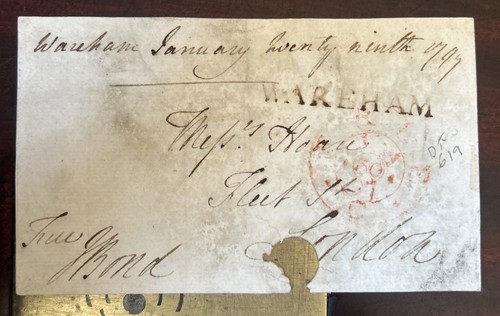 Wareham January twenty ninth 1797
WAREHAM
Messrs Hoare
Fleet St
London
Free
JBond
619